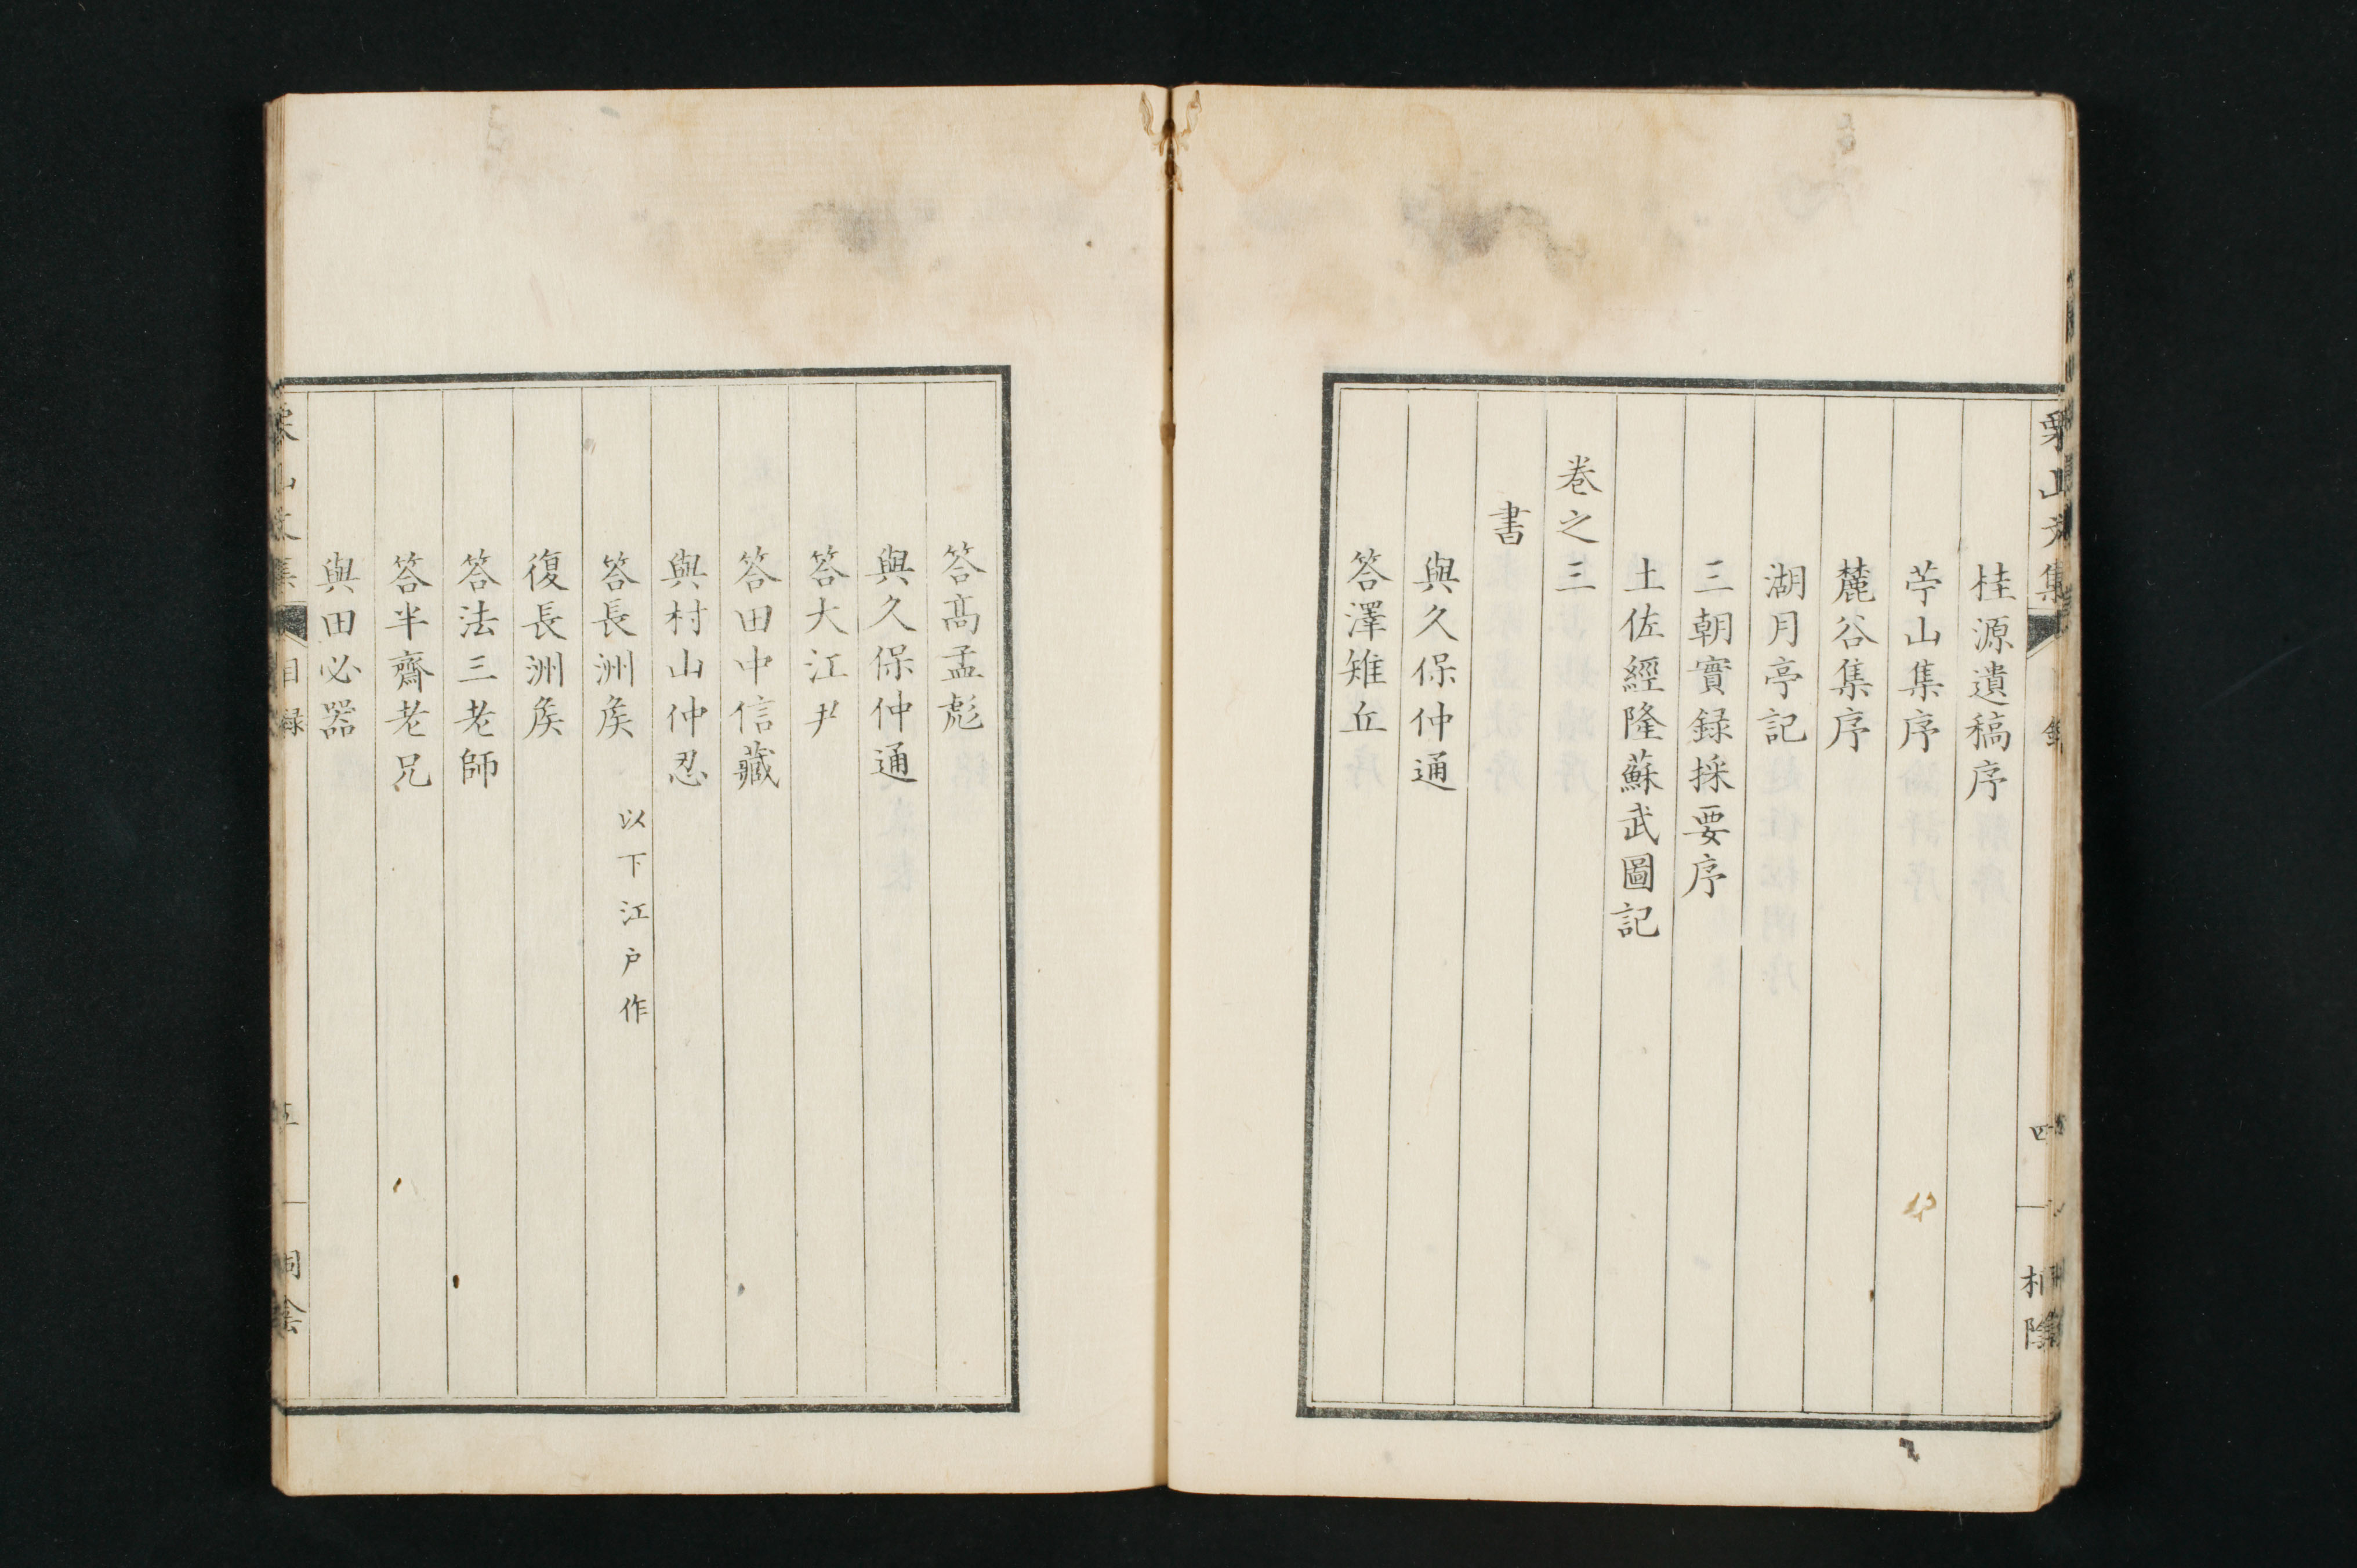 桂源遺稿序
苧山集序
麓谷集序
湖月亭記
三朝實録採要序
土佐經隆蘇武圖記
卷之三
書
與久保仲通
答澤雉丘
答髙孟彪
與久保仲通
答大江尹
答田中信藏
與村山仲忍
答長洲矦 以下江户作
復長洲矦
答法三老師
答半齋老兄
與田必器
目録